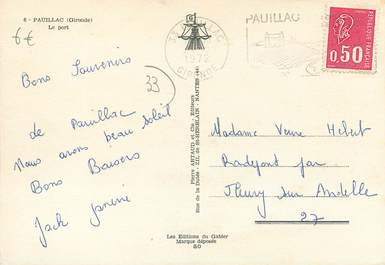 6 - PAUILLAC (Gironde)
Le port
6€
33
Bons Souvenirs
de Pauillac
Nous avons beau soleil
Bons Baisers
Jack
Pierre ARTAUD et Cie - Editeurs
Rue de la Dutée - Z.I.L. de St-HERBLAIN - NANTES
PAUILLAC
1972
GIRONDE
PAUILLAC
RÉPUBLIQUE FRANÇAISE
0,50
Madame Veuve Hebert
Radepont par
Fleury sur Andelle
27
Les Editions du Gabier
Marque déposée
50